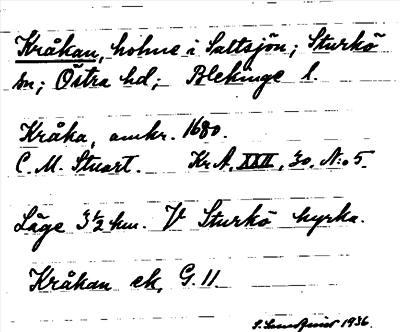 Kråkan, holme i Saltsjön; Sturkö
sn; Östra hd; Blekinge l.
Kråka, omkr. 1680.
C. M. Stuart. Kr A, XXII, 30, N:o 5.
Läge 3 1/2 km. V Sturkö kyrka.
Kråkan ek, G. 11.
1936.